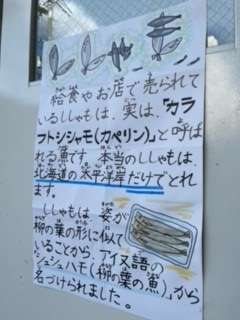 ししゃも
給食やお店で売られて
いるししゃもは、実は、「カラ
フトシシャモ(カペリン)」と呼ば
れる魚です。本当のししゃもは、
北海道の太平洋岸だけでとれ
ます。
ししゃもは、姿が
柳の葉の形に似て
いることから、アイヌ語の
シュシュハモ(柳の葉の魚)」から
名づけられました。